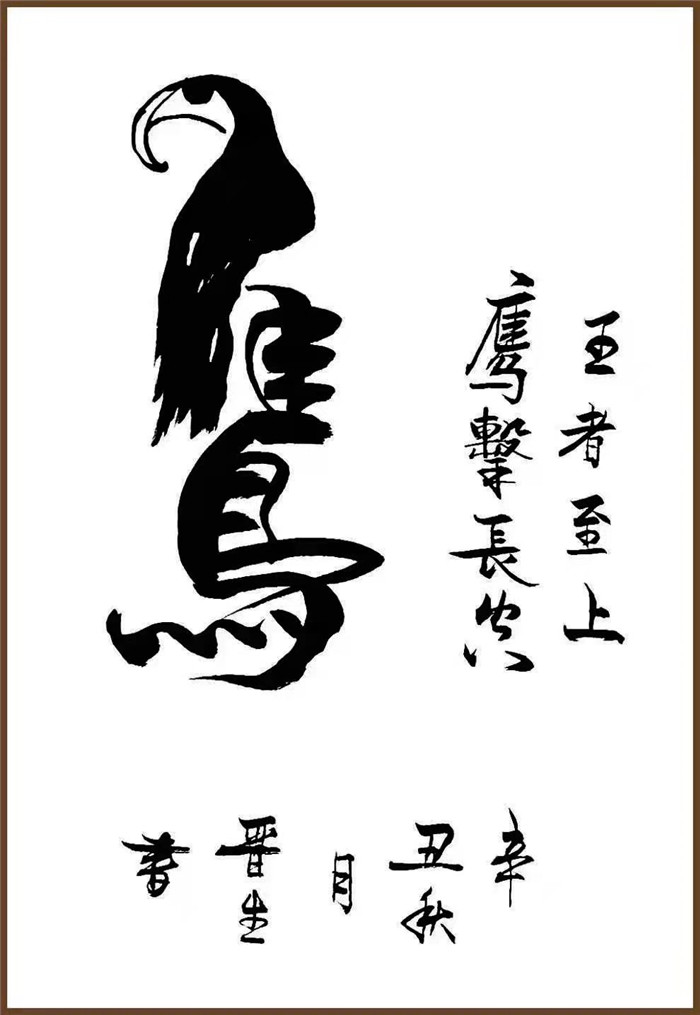 王者至上
鷹擊長空
鷹
辛
丑秋
月
晋生
書